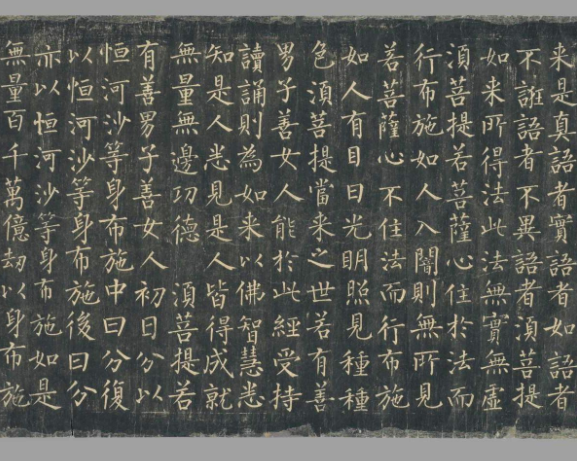 来是真語者實語者如語者
不誑語者不異語者湏菩提
如来所得法此法無實無虛
湏菩提若菩薩心住於法而
行布施如人入闇則無所見
若菩薩心不住法而行布施
如人有目日光明照見種種
色湏菩提當来之世若有善
男子善女人能於此經受持
讀誦則為如来以佛智慧悉
知是人悉見是人皆得成就
無量無邊功德 湏菩提若
有善男子善女人初日分以
恒河沙等身布施中日分復
以恒河沙等身布施後日分
亦以恒河沙等身布施如是
無量百千萬億劫以身布施